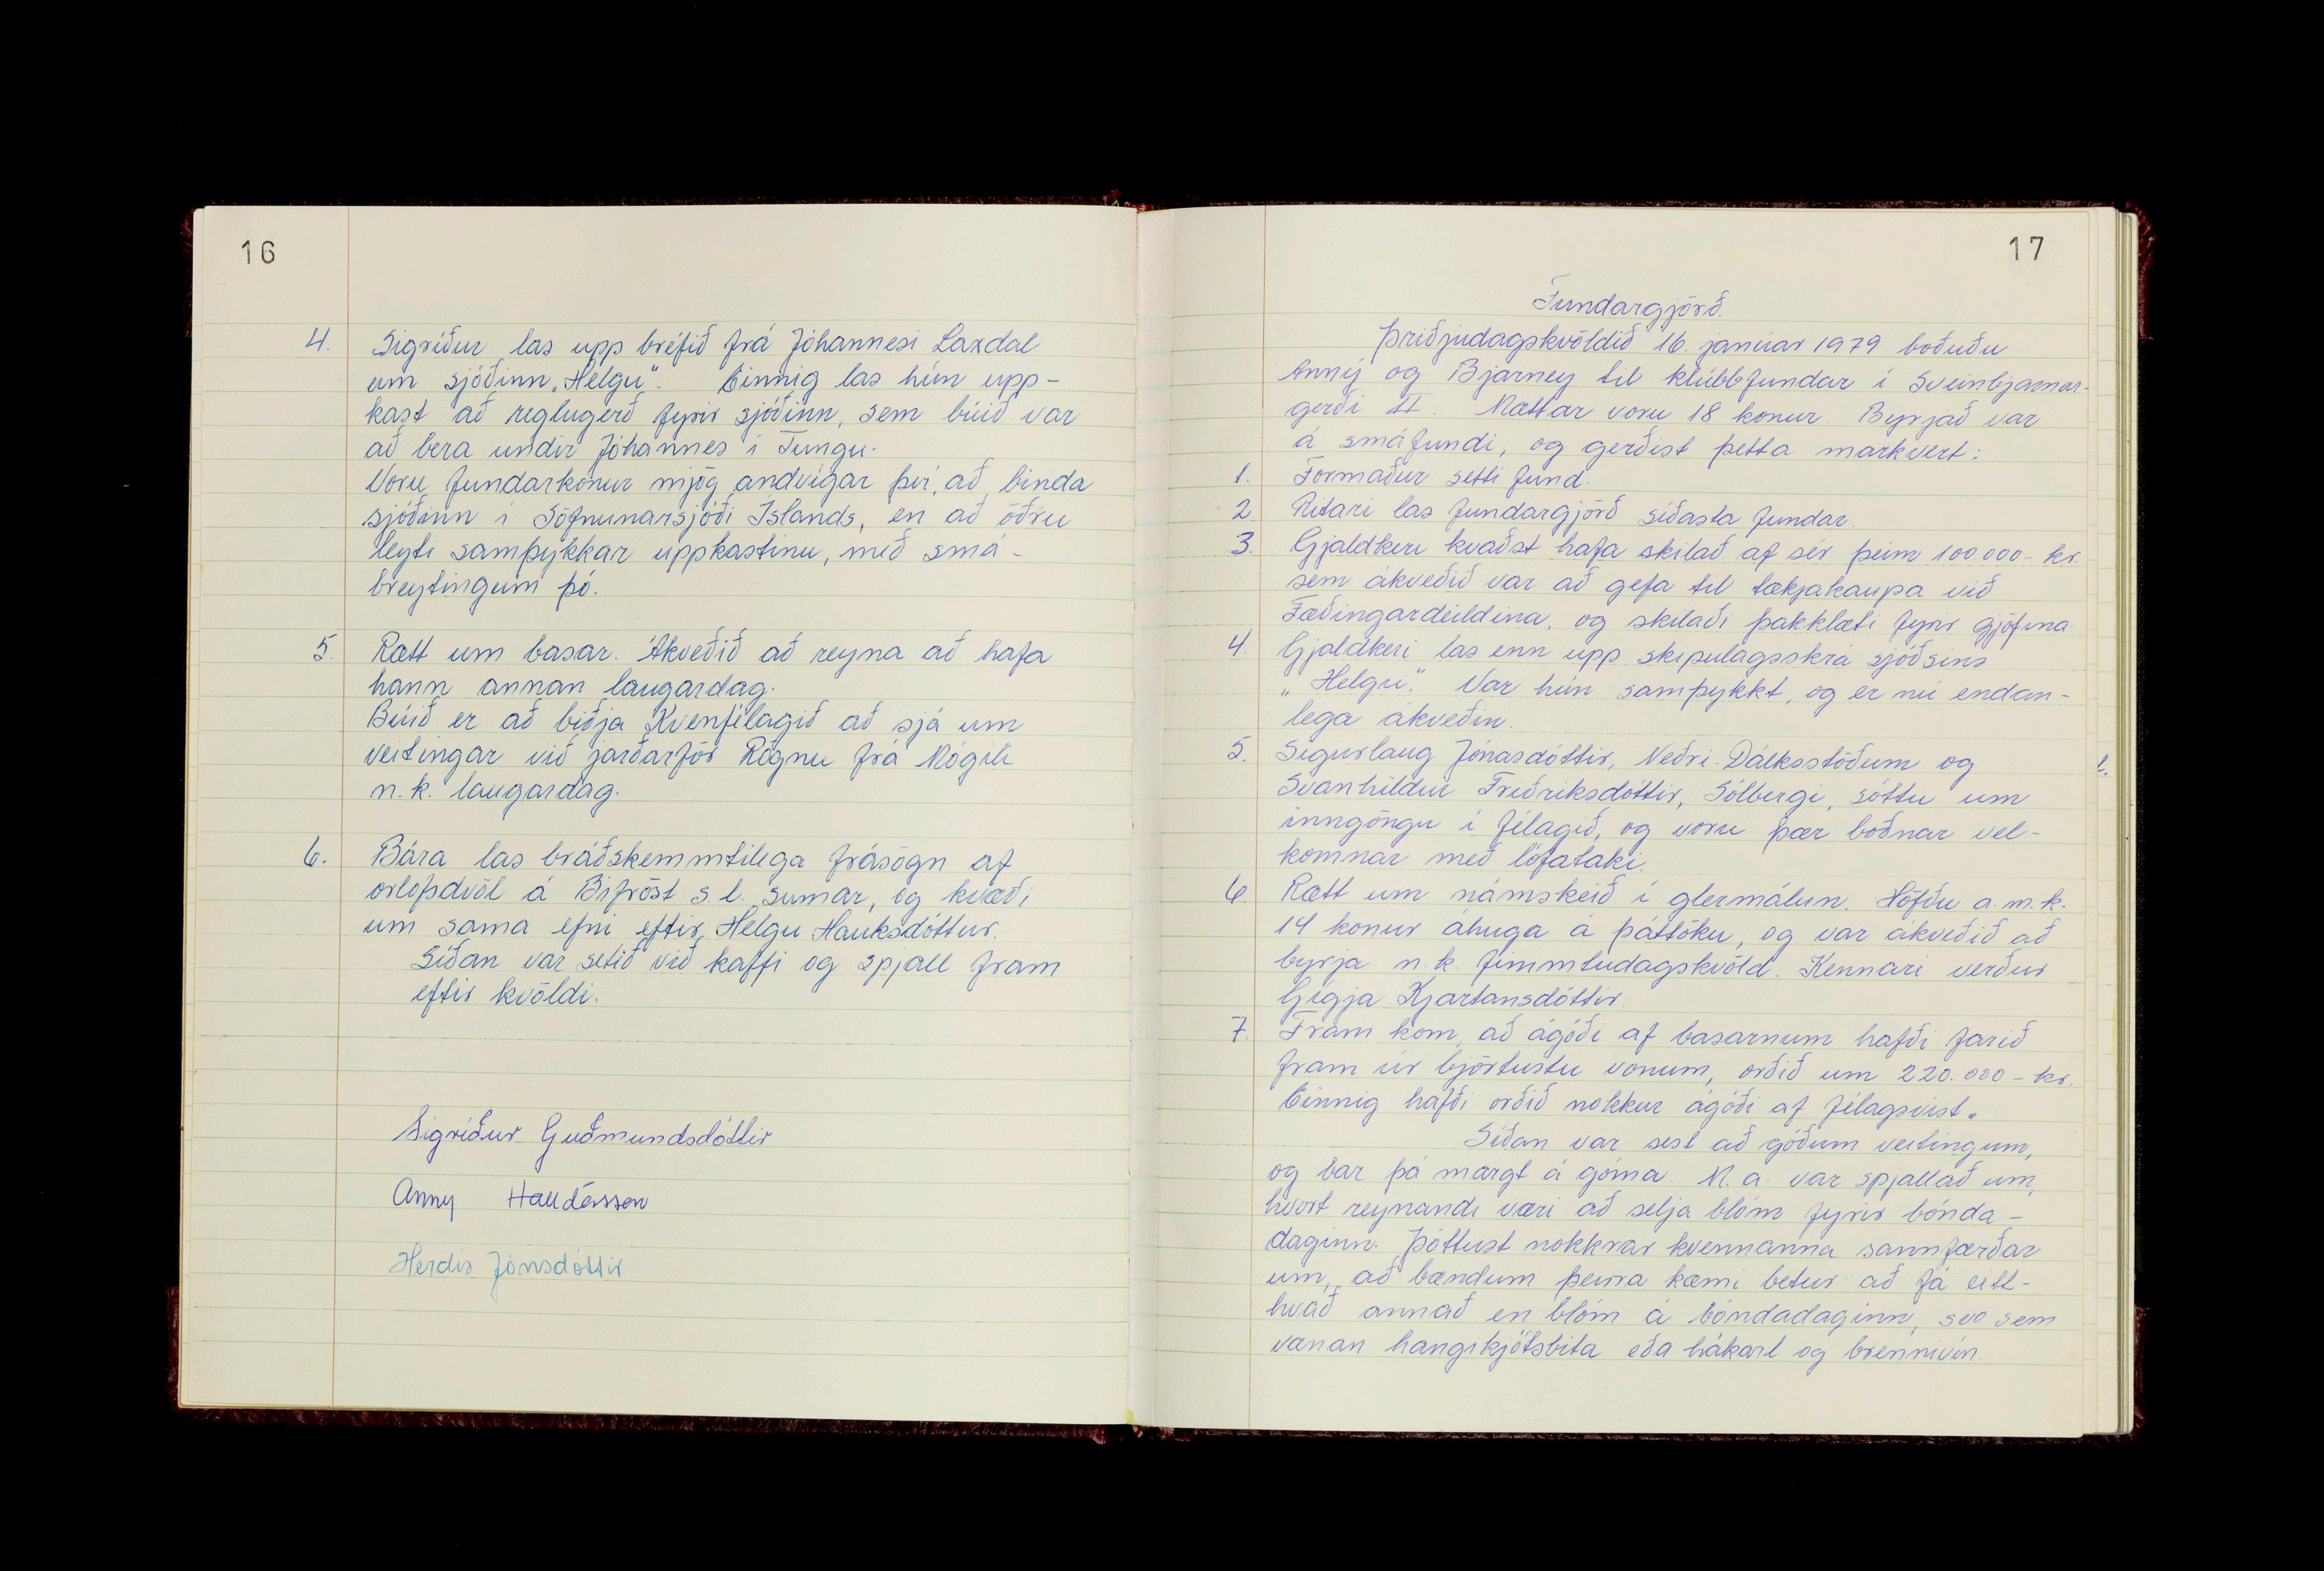 16
4. Sigríður las upp bréfið frá Jóhannesi Laxdal
um sjóðinn „Helgu“. Einnig las hún upp-
kast að reglugerð fyrir sjóðinn, sem búið var
að bera undir Jóhannes í Tungu.
Voru fundarkonur mjög andvígar því, að binda
sjóðinn í Söfnunarsjóði Íslands, en að öðru
leyti samþykkar uppkastinu, með smá-
breytingum þó.
5. Rætt um basar. Ákveðið að reyna að hafa
hann annan laugardag.
Búið er að biðja Kvenfélagið að sjá um
veitingar við jarðarför Rögnu frá Mógili
n.k. laugardag.
6. Bára las bráðskemmtilega frásögn af
orlofsdvöl á Bifröst s.l. sumar, og kvæði
um sama efni eftir Helgu Hauksdóttur.
Síðan var setið við kaffi og spjall fram
eftir kvöldi.
Sigríður Guðmundsdóttir
Anny Halldórsson
Herdís Jónsdóttir
17
Fundargjörð.
Þriðjudagskvöldið 16. janúar 1979 boðuðu
Anný og Bjarney til klúbbfundar í Sveinbjarnar-
gerði II. Mættar voru 18 konur. Byrjað var
á smáfundi, og gerðist þetta markvert:
1. Formaður setti fund.
2. Ritari las fundargjörð síðasta fundar.
3. Gjaldkeri kvaðst hafa skilað af sér þeim 100.000- kr.
sem ákveðið var að gefa til tækjakaupa við
Fæðingardeildina, og skilaði þakklæti fyrir gjöfina.
4. Gjaldkeri las enn upp skipulagsskrá sjóðsins
„Helgu.“ Var hún samþykkt, og er nú endan-
lega ákveðin.
5. Sigurlaug Jónasdóttir, Neðri-Dálksstöðum og
Svanhildur Friðriksdóttir, Sólbergi, sóttu um
inngöngu í félagið, og voru þær boðnar vel-
komnar með lófataki.
6. Rætt um námskeið í glermálun. Höfðu a.m.k.
14 konur áhuga á þáttöku, og var ákveðið að
byrja n.k. fimmtudagskvöld. Kennari verður
Gígja Kjartansdóttir.
7. Fram kom, að ágóði af basarnum hafði farið
fram úr björtustu vonum, orðið um 220.000- kr.
Einnig hafði orðið nokkur ágóði af félagsvist.
Síðan var sest að góðum veitingum,
og bar þá margt á góma. M.a. var spjallað um,
hvort reynandi væri að selja blóm fyrir bónda-
daginn. Þóttust nokkrar kvennanna sannfærðar
um, að bændum þeirra kæmi betur að fá eitt-
hvað annað en blóm á bóndadaginn, svo sem
vænan hangikjötsbita eða hákarl og brennivín.